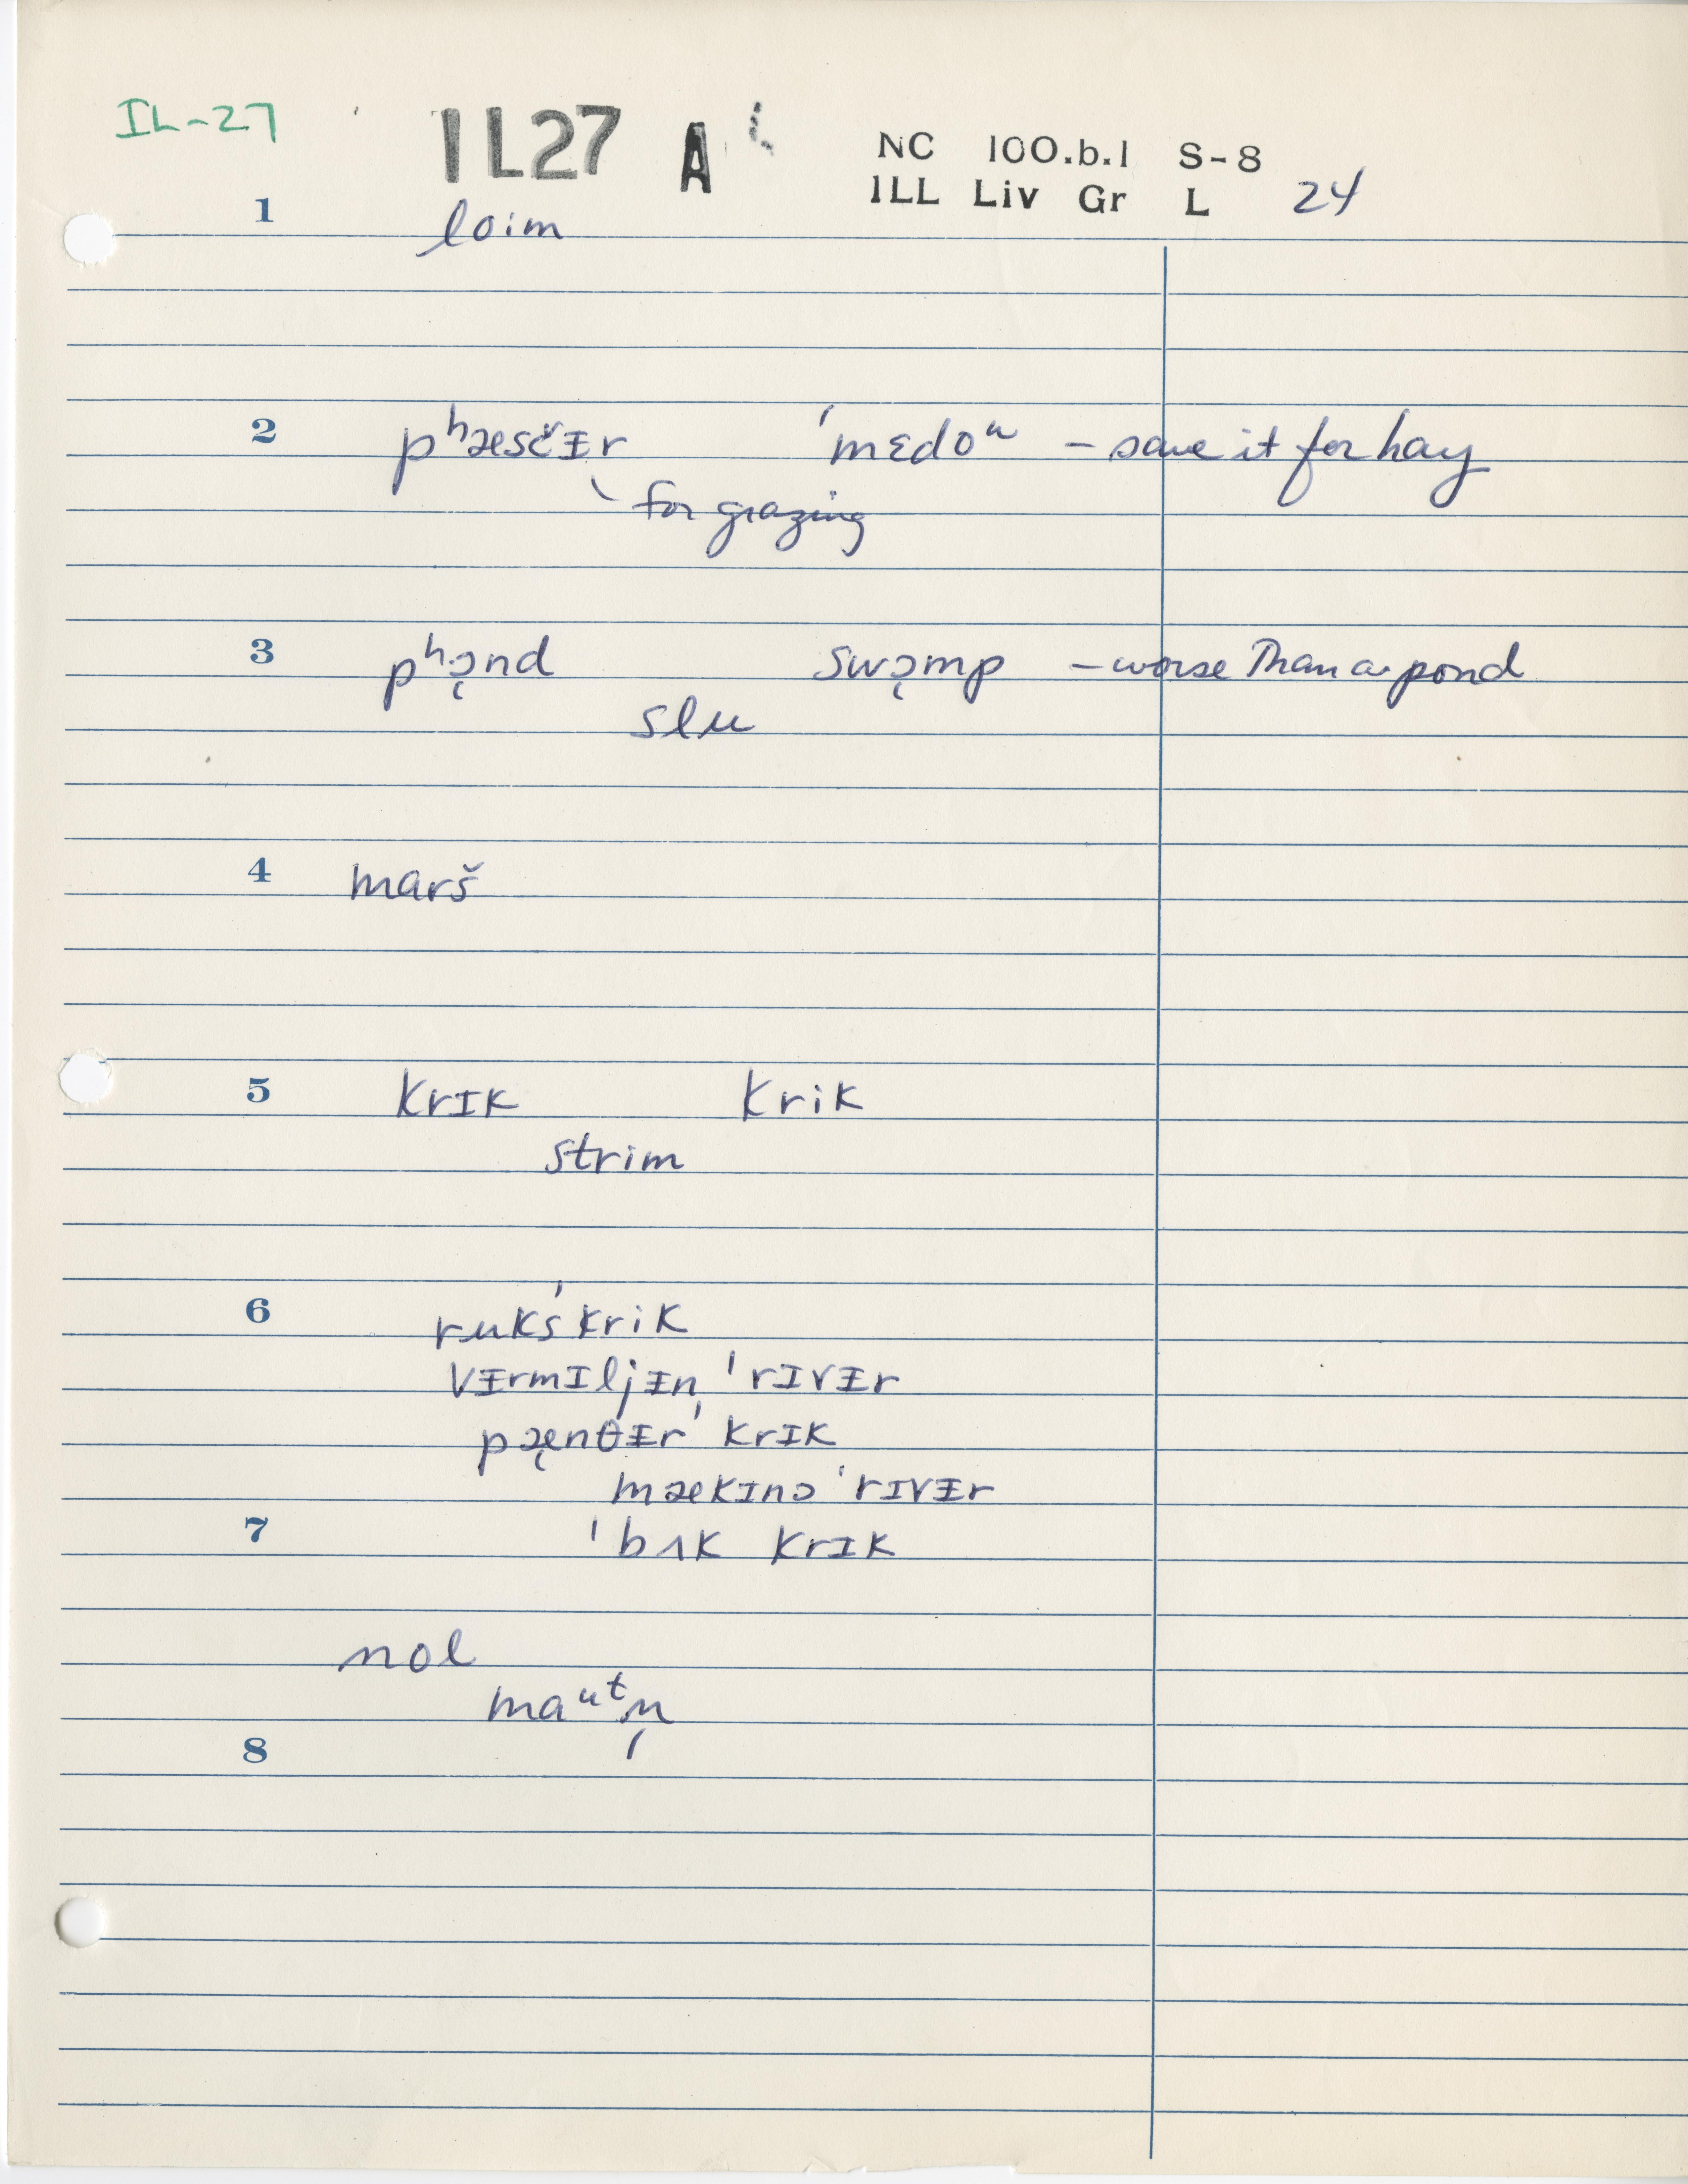 IL-27
IL27 A
NC 100.b.1 S-8
ILL Liv Gr L 24
1 loim
2 pʰæsčɪ̵r ˈmɛdoᵘ – save it for hay
for grazing
3 pʰɔ̨nd swɔ̨mp – worse than a pond
slu
4 marš
5 krɪk krik
strim
6 ruks ˈkrik
vɪ̵rmɪljɪ̵n ˈrɪvɪ̵r
pæ̨nθɪ̵r ˈkrɪk
mækɪnɔ ˈrɪvɪ̵r
7 ˈbʌk krɪk
nol
maᵘᵗn̩
8